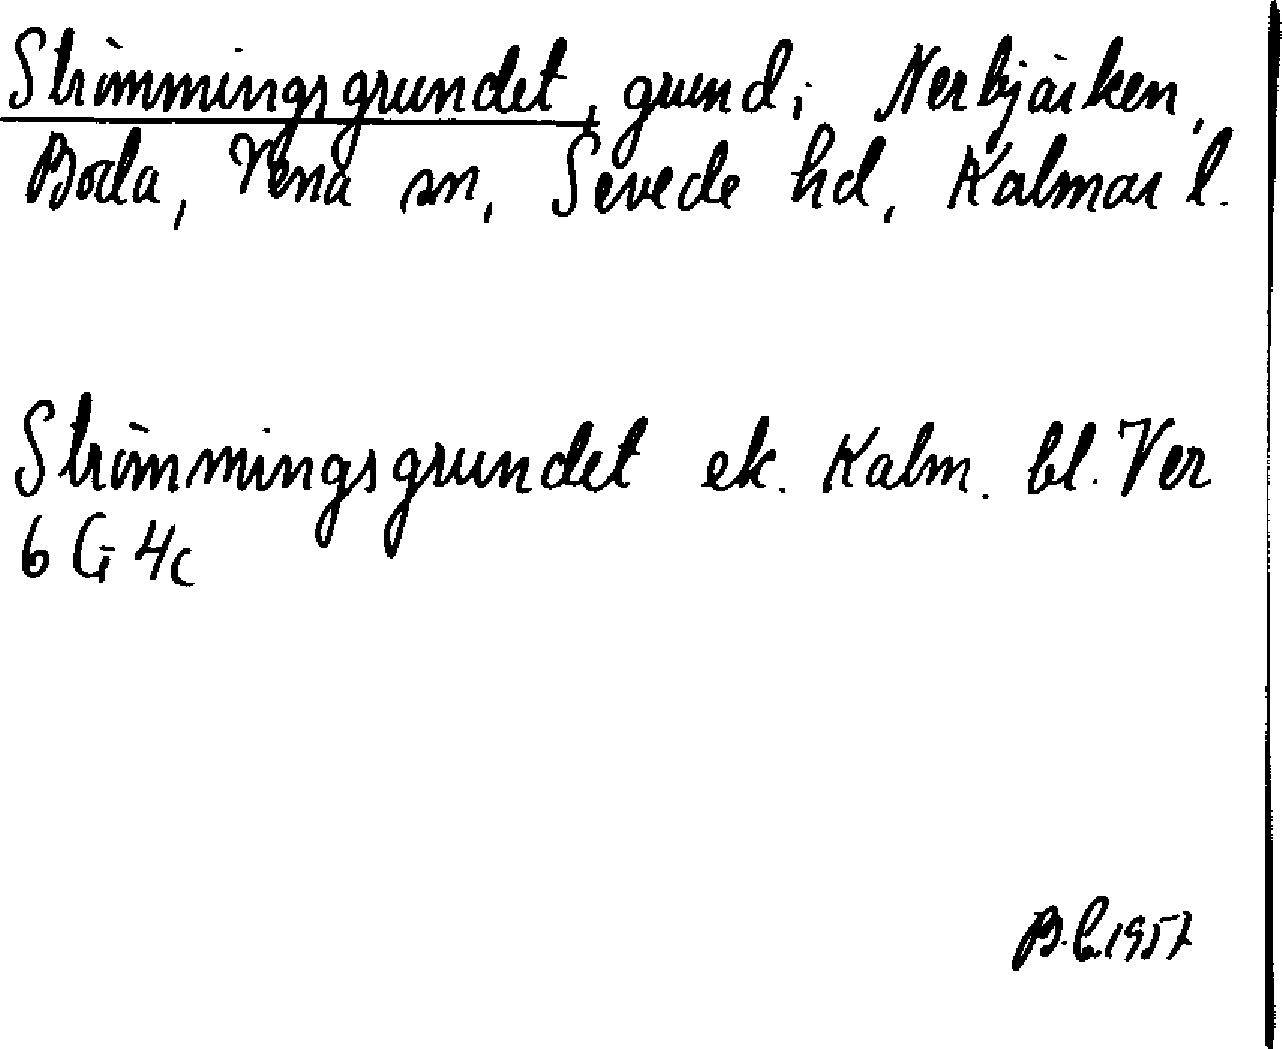 Strömmingsgrundet, grund i Nerbjärken,
Boda, Vena sn, Sevede hd, Kalmar l.
Strömmingsgrundet ek. Kalm. bl. Ver
6 G 4c
B.C. 1957